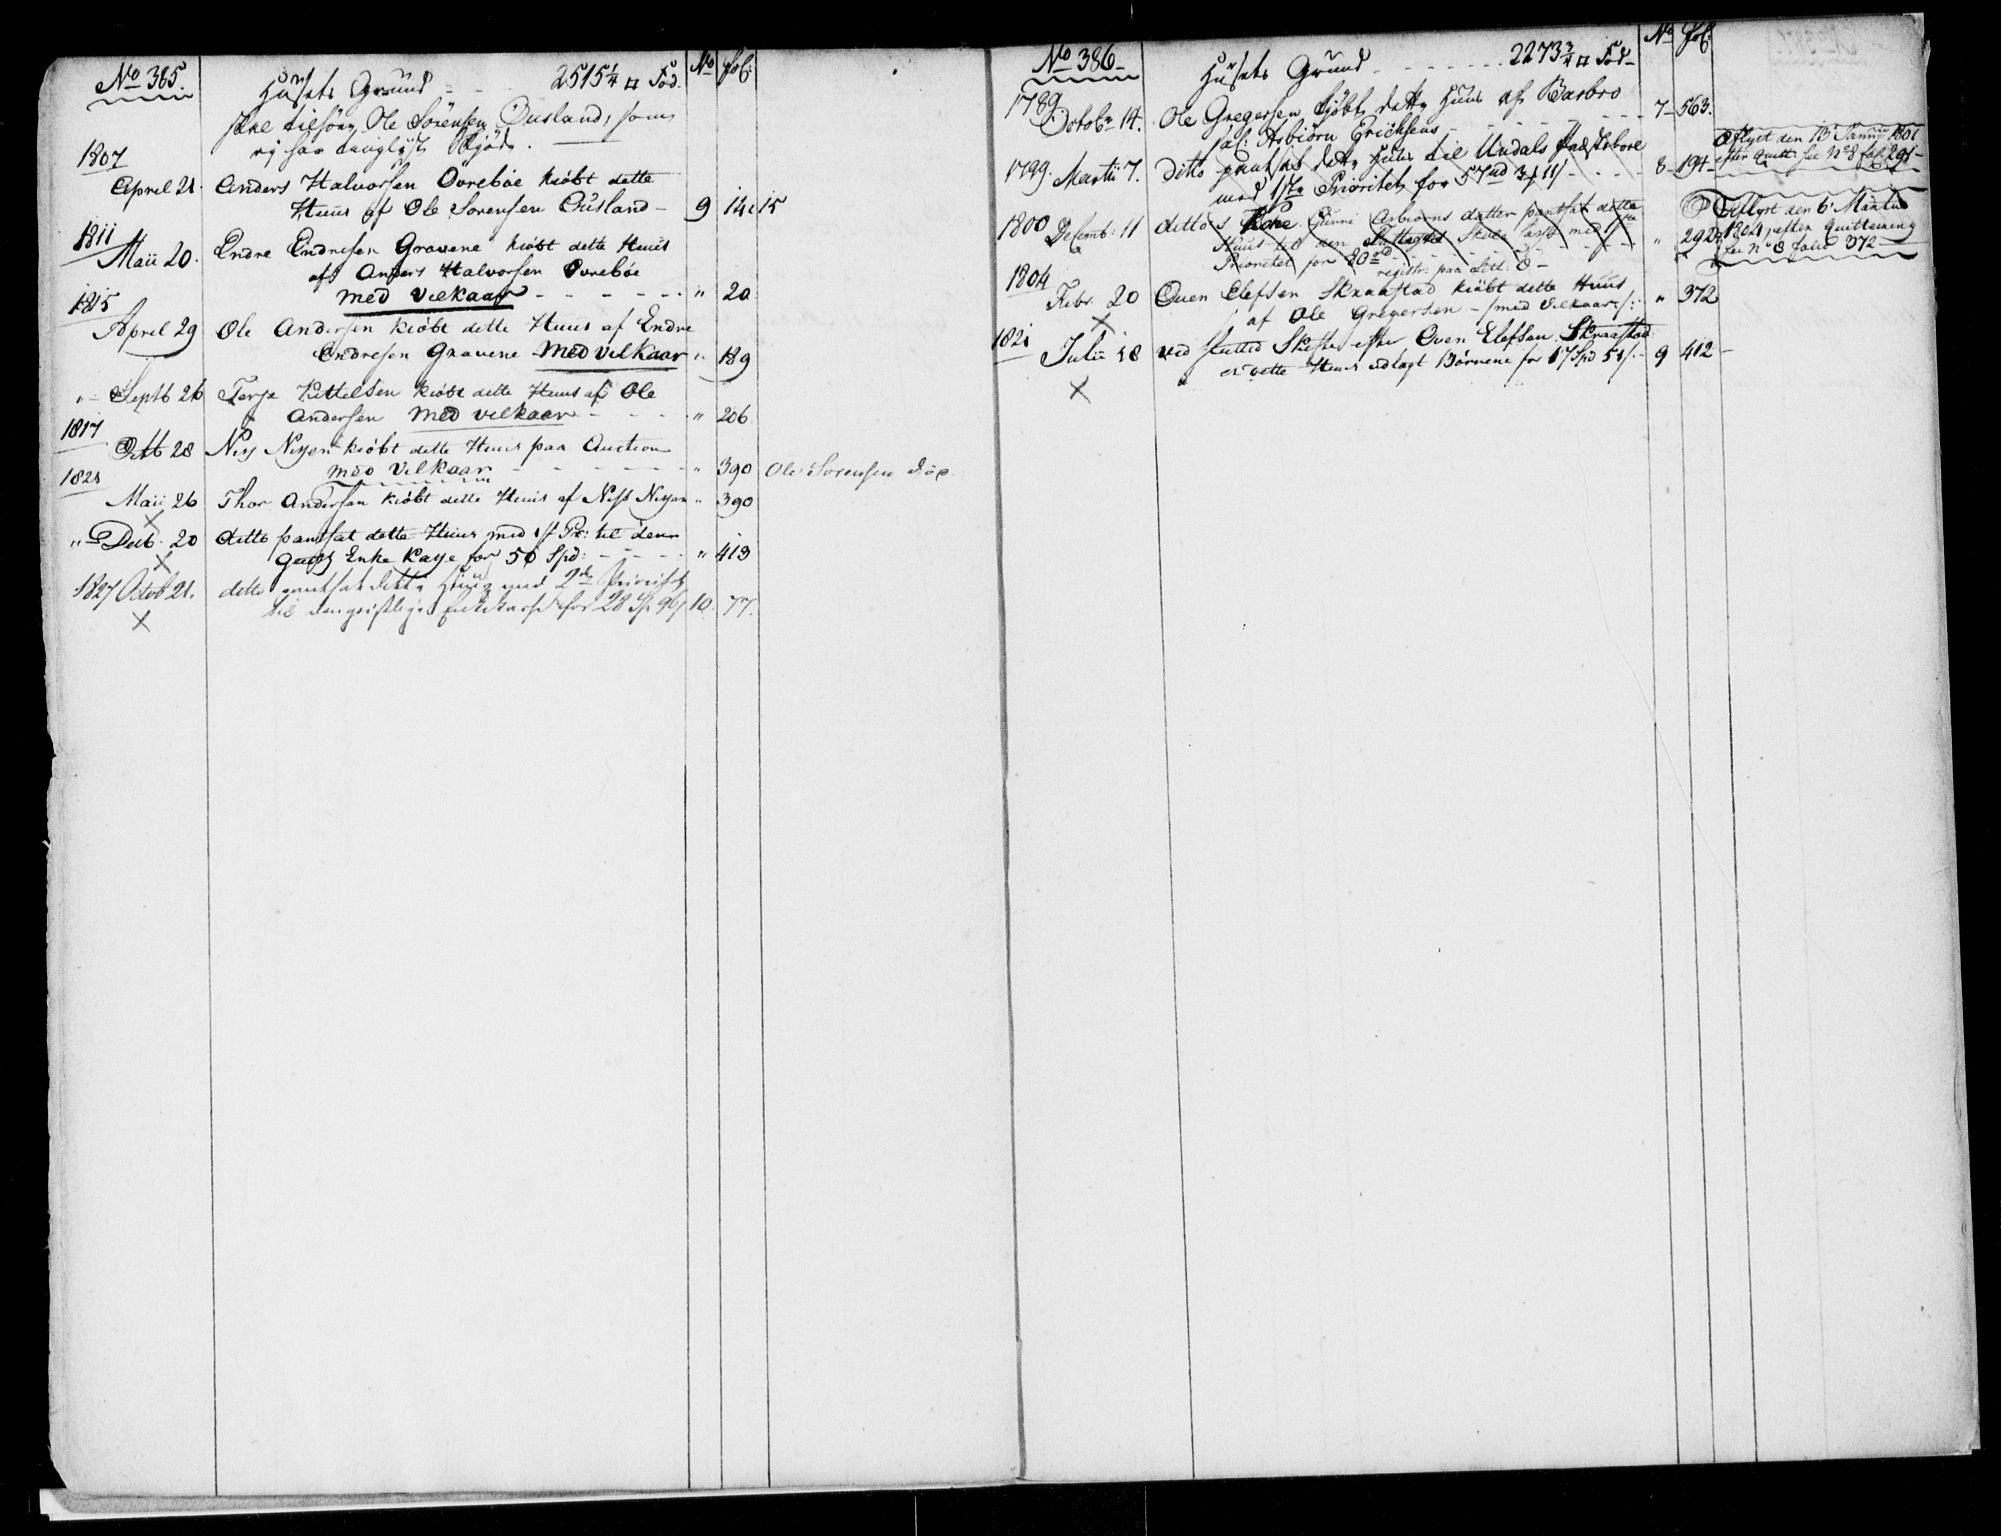 No 385.
Husets Grund - - 2515 1/4 □ Fod. No fol:
skal tilhøre Ole Sörensen Ousland, som
ej har tinglyst Skjøde.
1807
April 21. Anders Halvorsen Ovrebøe kiøbt dette
Huus af Ole Sorensen Ousland - 9 14 & 15
1811
Maii 20. Endre Endresen Gravene kiøbt dette Huus
af Anders Halvorsen Ovrebøe
med vilkaar - - - - - " 20
1815
April 29 Ole Andersen kiøbt dette Huus af Endre
Endresen Gravene med vilkaar " 189
" - Septb 26 Terje Kittelsen kiøbt dette Huus af Ole
Andersen med vilkaar - - - " 206
1817
Octb 28 Niss Nissen kiøbt dette Huus paa Auction
med Vilkaar - - - - - " 390 Ole Sorensen døe
1821
Maii 26 Thor Andersen kiøbt dette Huus af Niss Nissen " 390
" Decb. 20 ditto pantsat dette Huus med 1st Pr: til den
Enke Kasse for 50 Spd: - - - " 413
1827 Octob 21. ditto pantsat dette Huus med 2den Prioritet
til den geistlige Enkekasse for 28 Sp 96/ 10. 77.
No 386 -
Husets Grund - - - - - - 2273 3/4 □ Fod - No fol:
1789.
Octobr 14. Ole Gregersen kjöbt dette Huus af Barbro
sal: Asbiörn Erichsens - - - - - - 7 - 563.
1799. Martii 7. ditto pantsat dette Huus til Undals
med 1ste Prioritet for 57 rd 3 / 11 / - - - - 8 - 194 -
Aflyst den 13 Januar 1801
efter Quitt: see No 8 fol: 291 -
1800 Decemb: 11 ditto s Kone Gunni Asbiørns datter pantsat dette
Huus til den Skole Casse med 1ste
Prioritet for 80 rd - - - - - " 292
registr: paa Litt: O -
Aflyst den 6 Martii
1804 efter Quittering
see No 8 folio 372
1804
Febr. 20 Ouen Elefsen Skraastad kiøbt dette Huus
af Ole Gregersen - /med Vilkaar/: " 372
1821
Julii 18 ved sluttet Skifte efter Ouen Elefsen Skraastad
er dette Huus udlagt Børnene for 17 Spd 51/. - 9 412 -